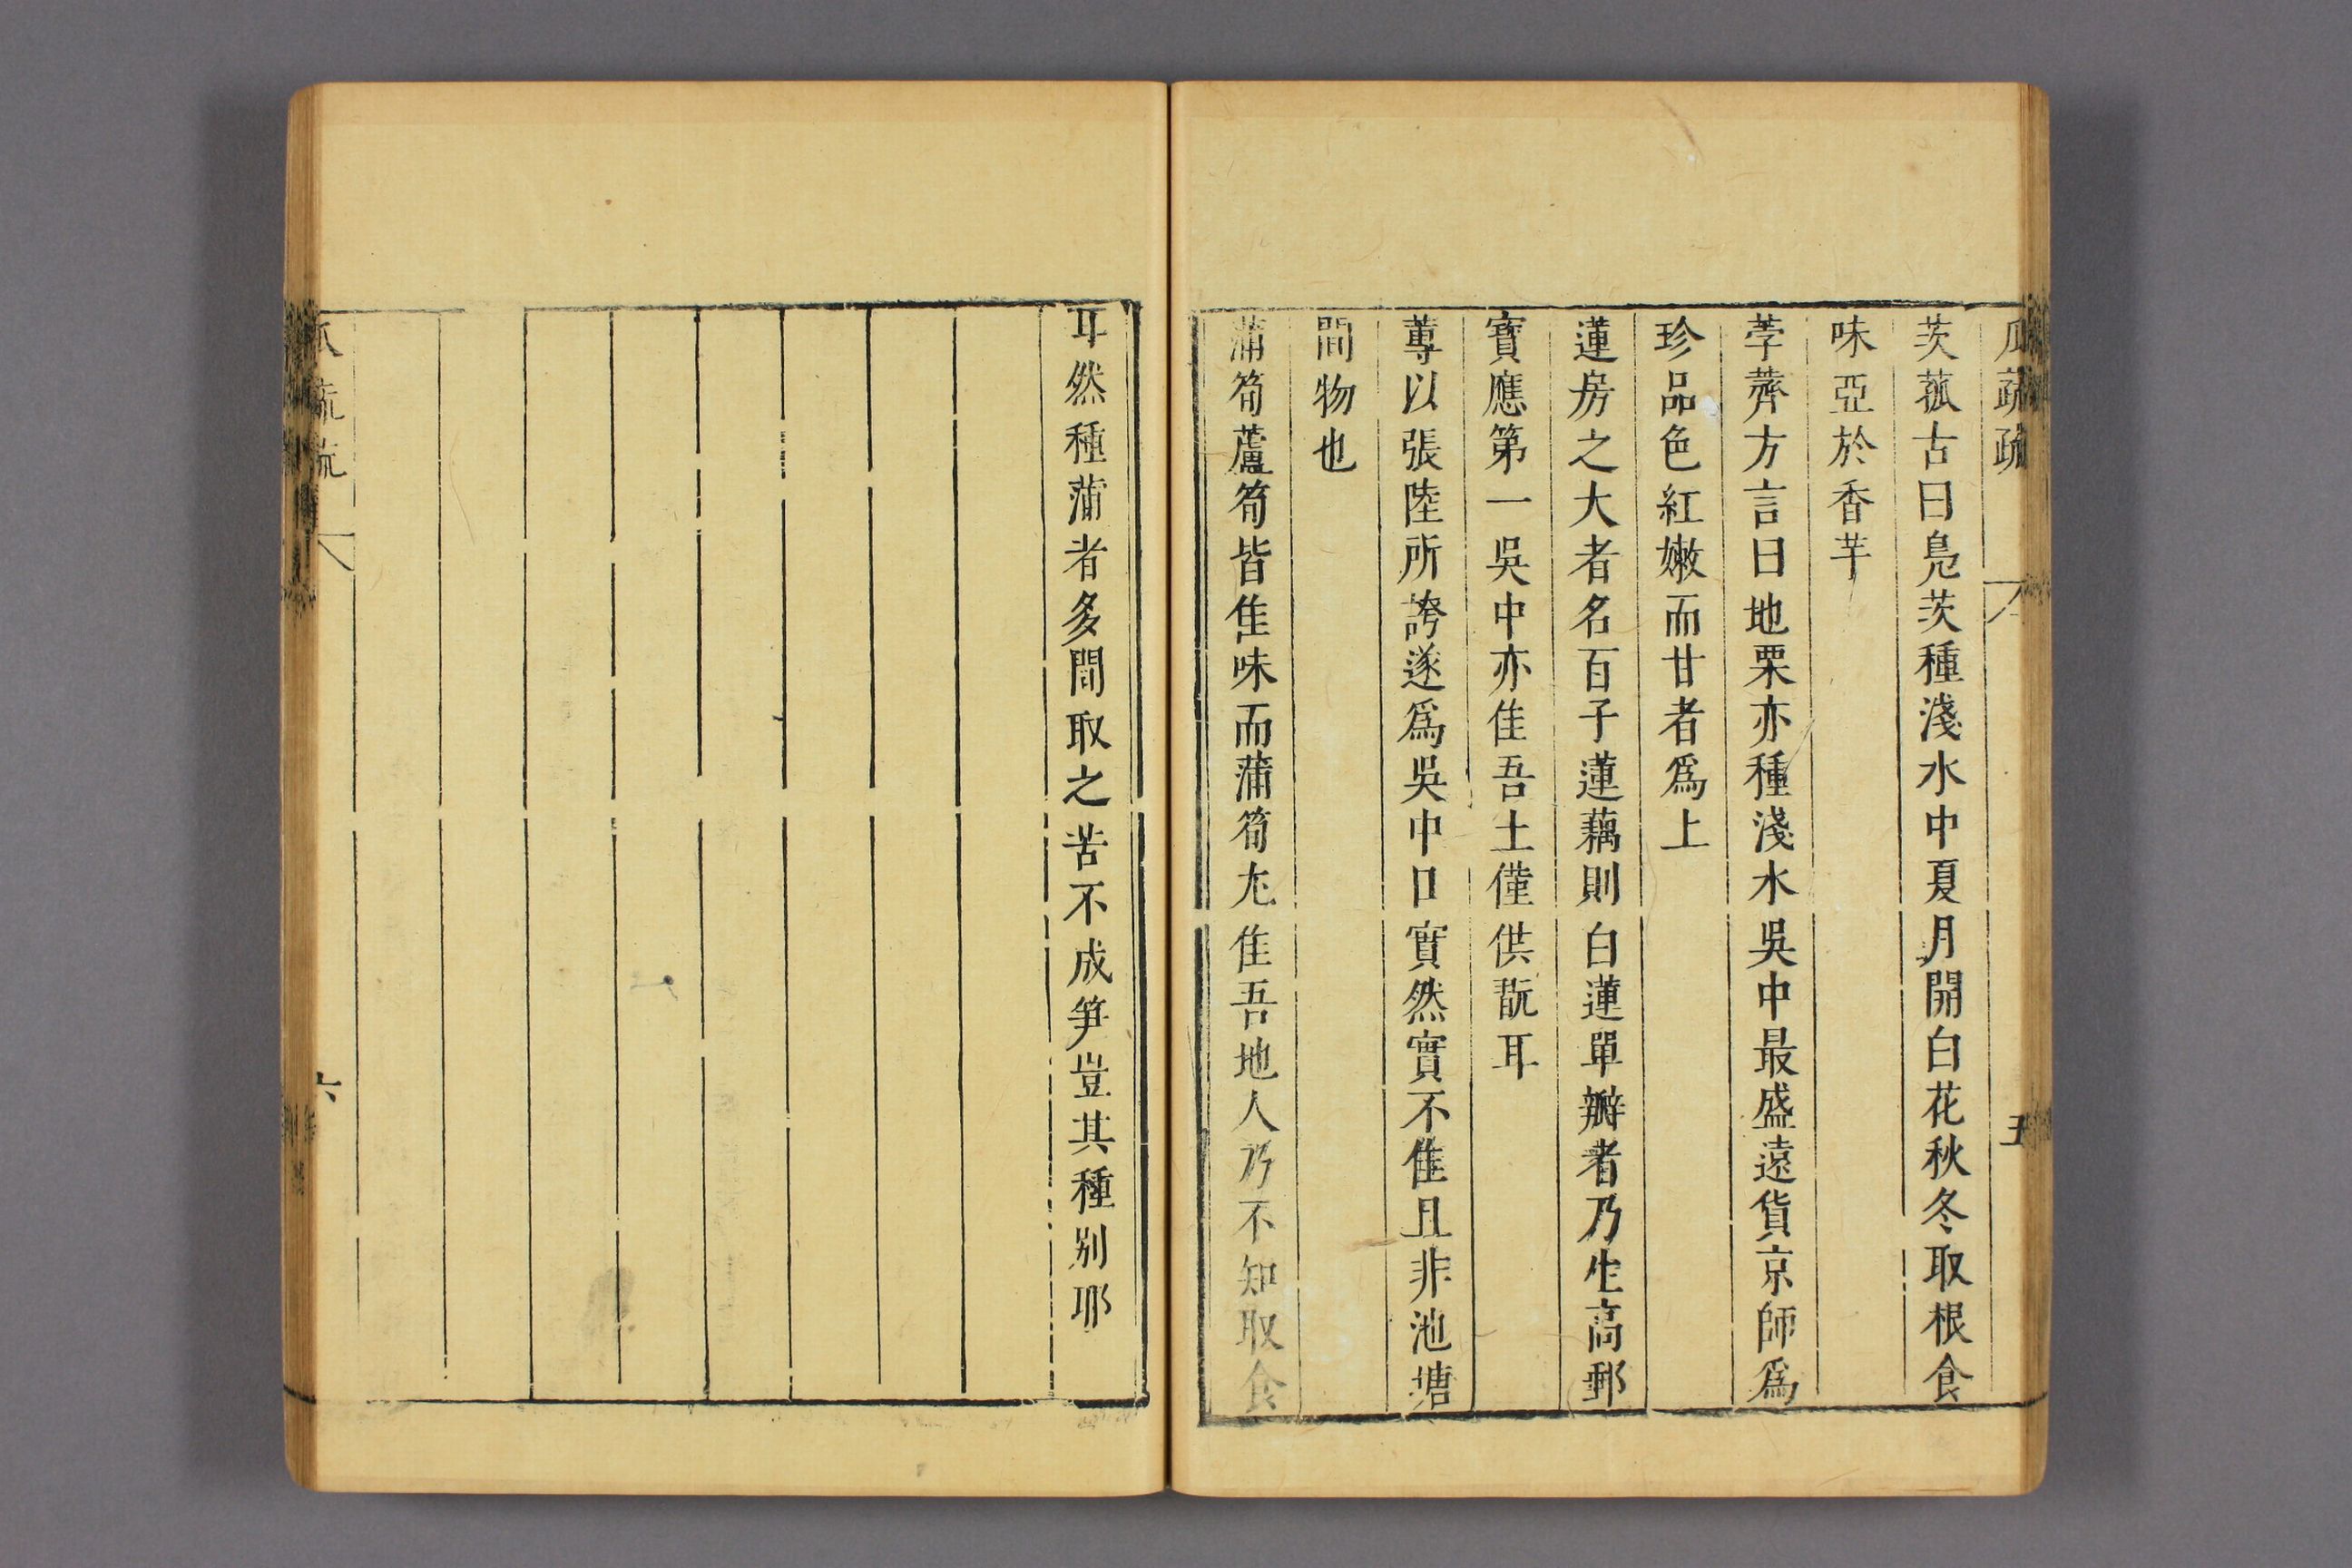 瓜蔬疏
五
茨菰古曰鳬茨種淺水中夏月開白花秋冬取根食
味亞於香芋
荸薺方言曰地栗亦種淺水吳中最盛遠貨京師爲
珍品色紅嫩而甘者爲上
蓮房之大者名百子蓮藕則白蓮單瓣者乃生高郵
寶應第一吳中亦佳吾土僅供翫耳
蓴以張陸所誇遂爲吳中口實然實不佳且非池塘
間物也
蒲筍蘆筍皆佳味而蒲筍尢佳吾地人乃不知取食
耳然種蒲者多間取之苦不成笋豈其種别耶
瓜蔬疏
六